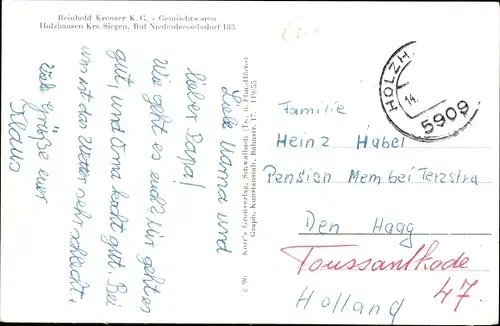 Reinhold Krenzer K. G. - Gemischtwaren
Holzhausen Krs. Siegen, Ruf Niederdresselndorf 183
Liebe Mama und
lieber Papa!
Wie geht es euch? Mir geht es
gut, und Oma kocht gut. Bei
uns ist das Wetter sehr schlecht.
Viele Grüße euer
Klaus
c 96 Korr's Großverlag, Schwalbach (Ts.)
Graph. Kunstanstalt, Bahnstr. 17.
HOLZH
14.
5909
Familie
Heinz Habel
Pension Mem bei Terzstra
Den Haag
Toussantkade
47.
Holland